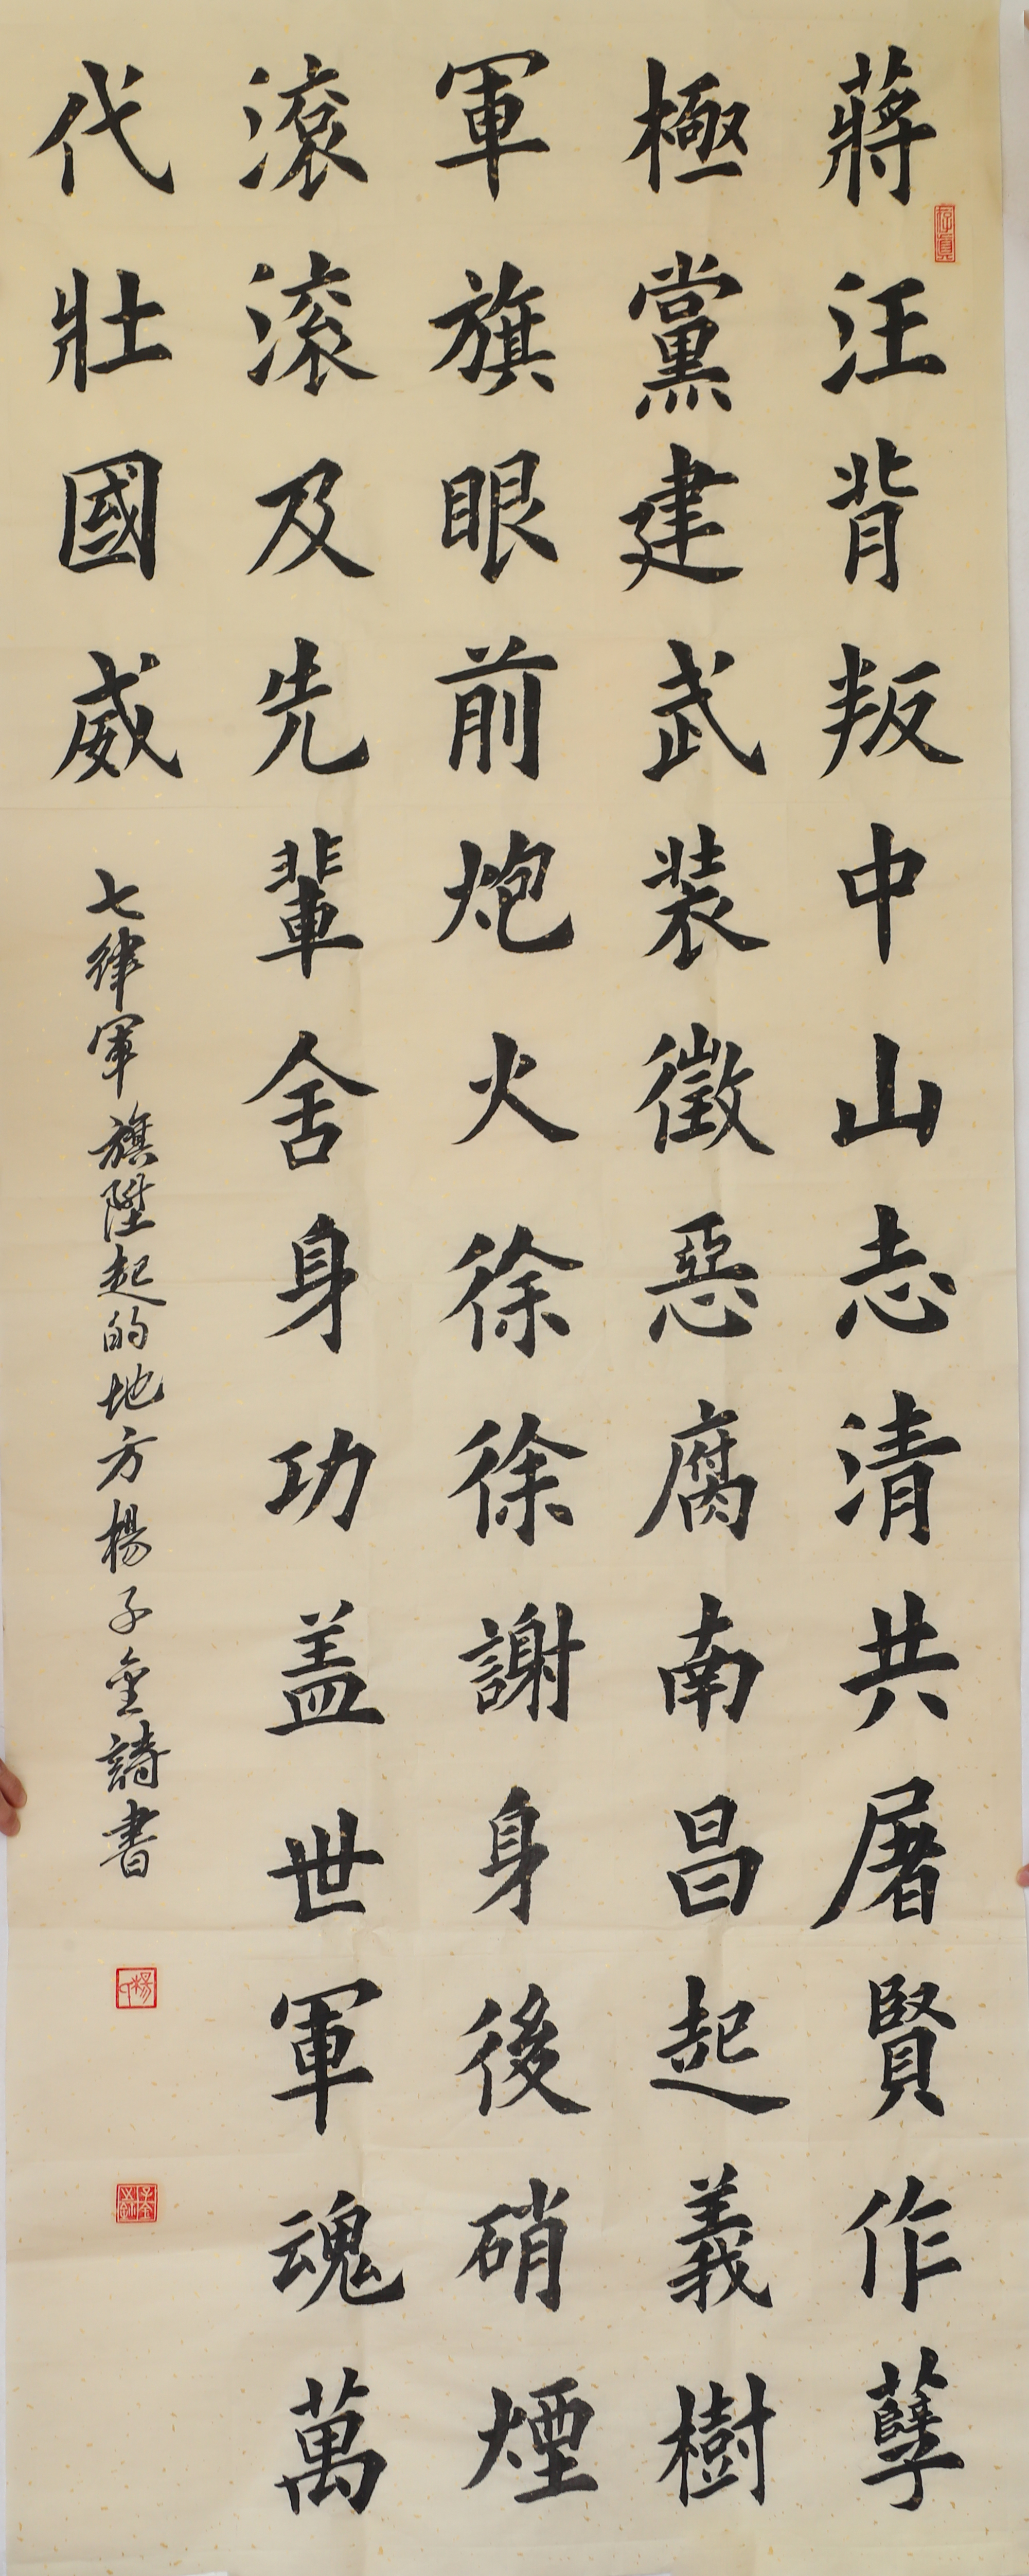 蔣汪背叛中山志清共屠賢作孽
極黨建武裝徵惡腐南昌起義樹
軍旗眼前炮火徐徐謝身後硝煙
滾滾及先輩舍身功盖世軍魂萬
代壯國威
七律軍旗陞起的地方楊子金詩書